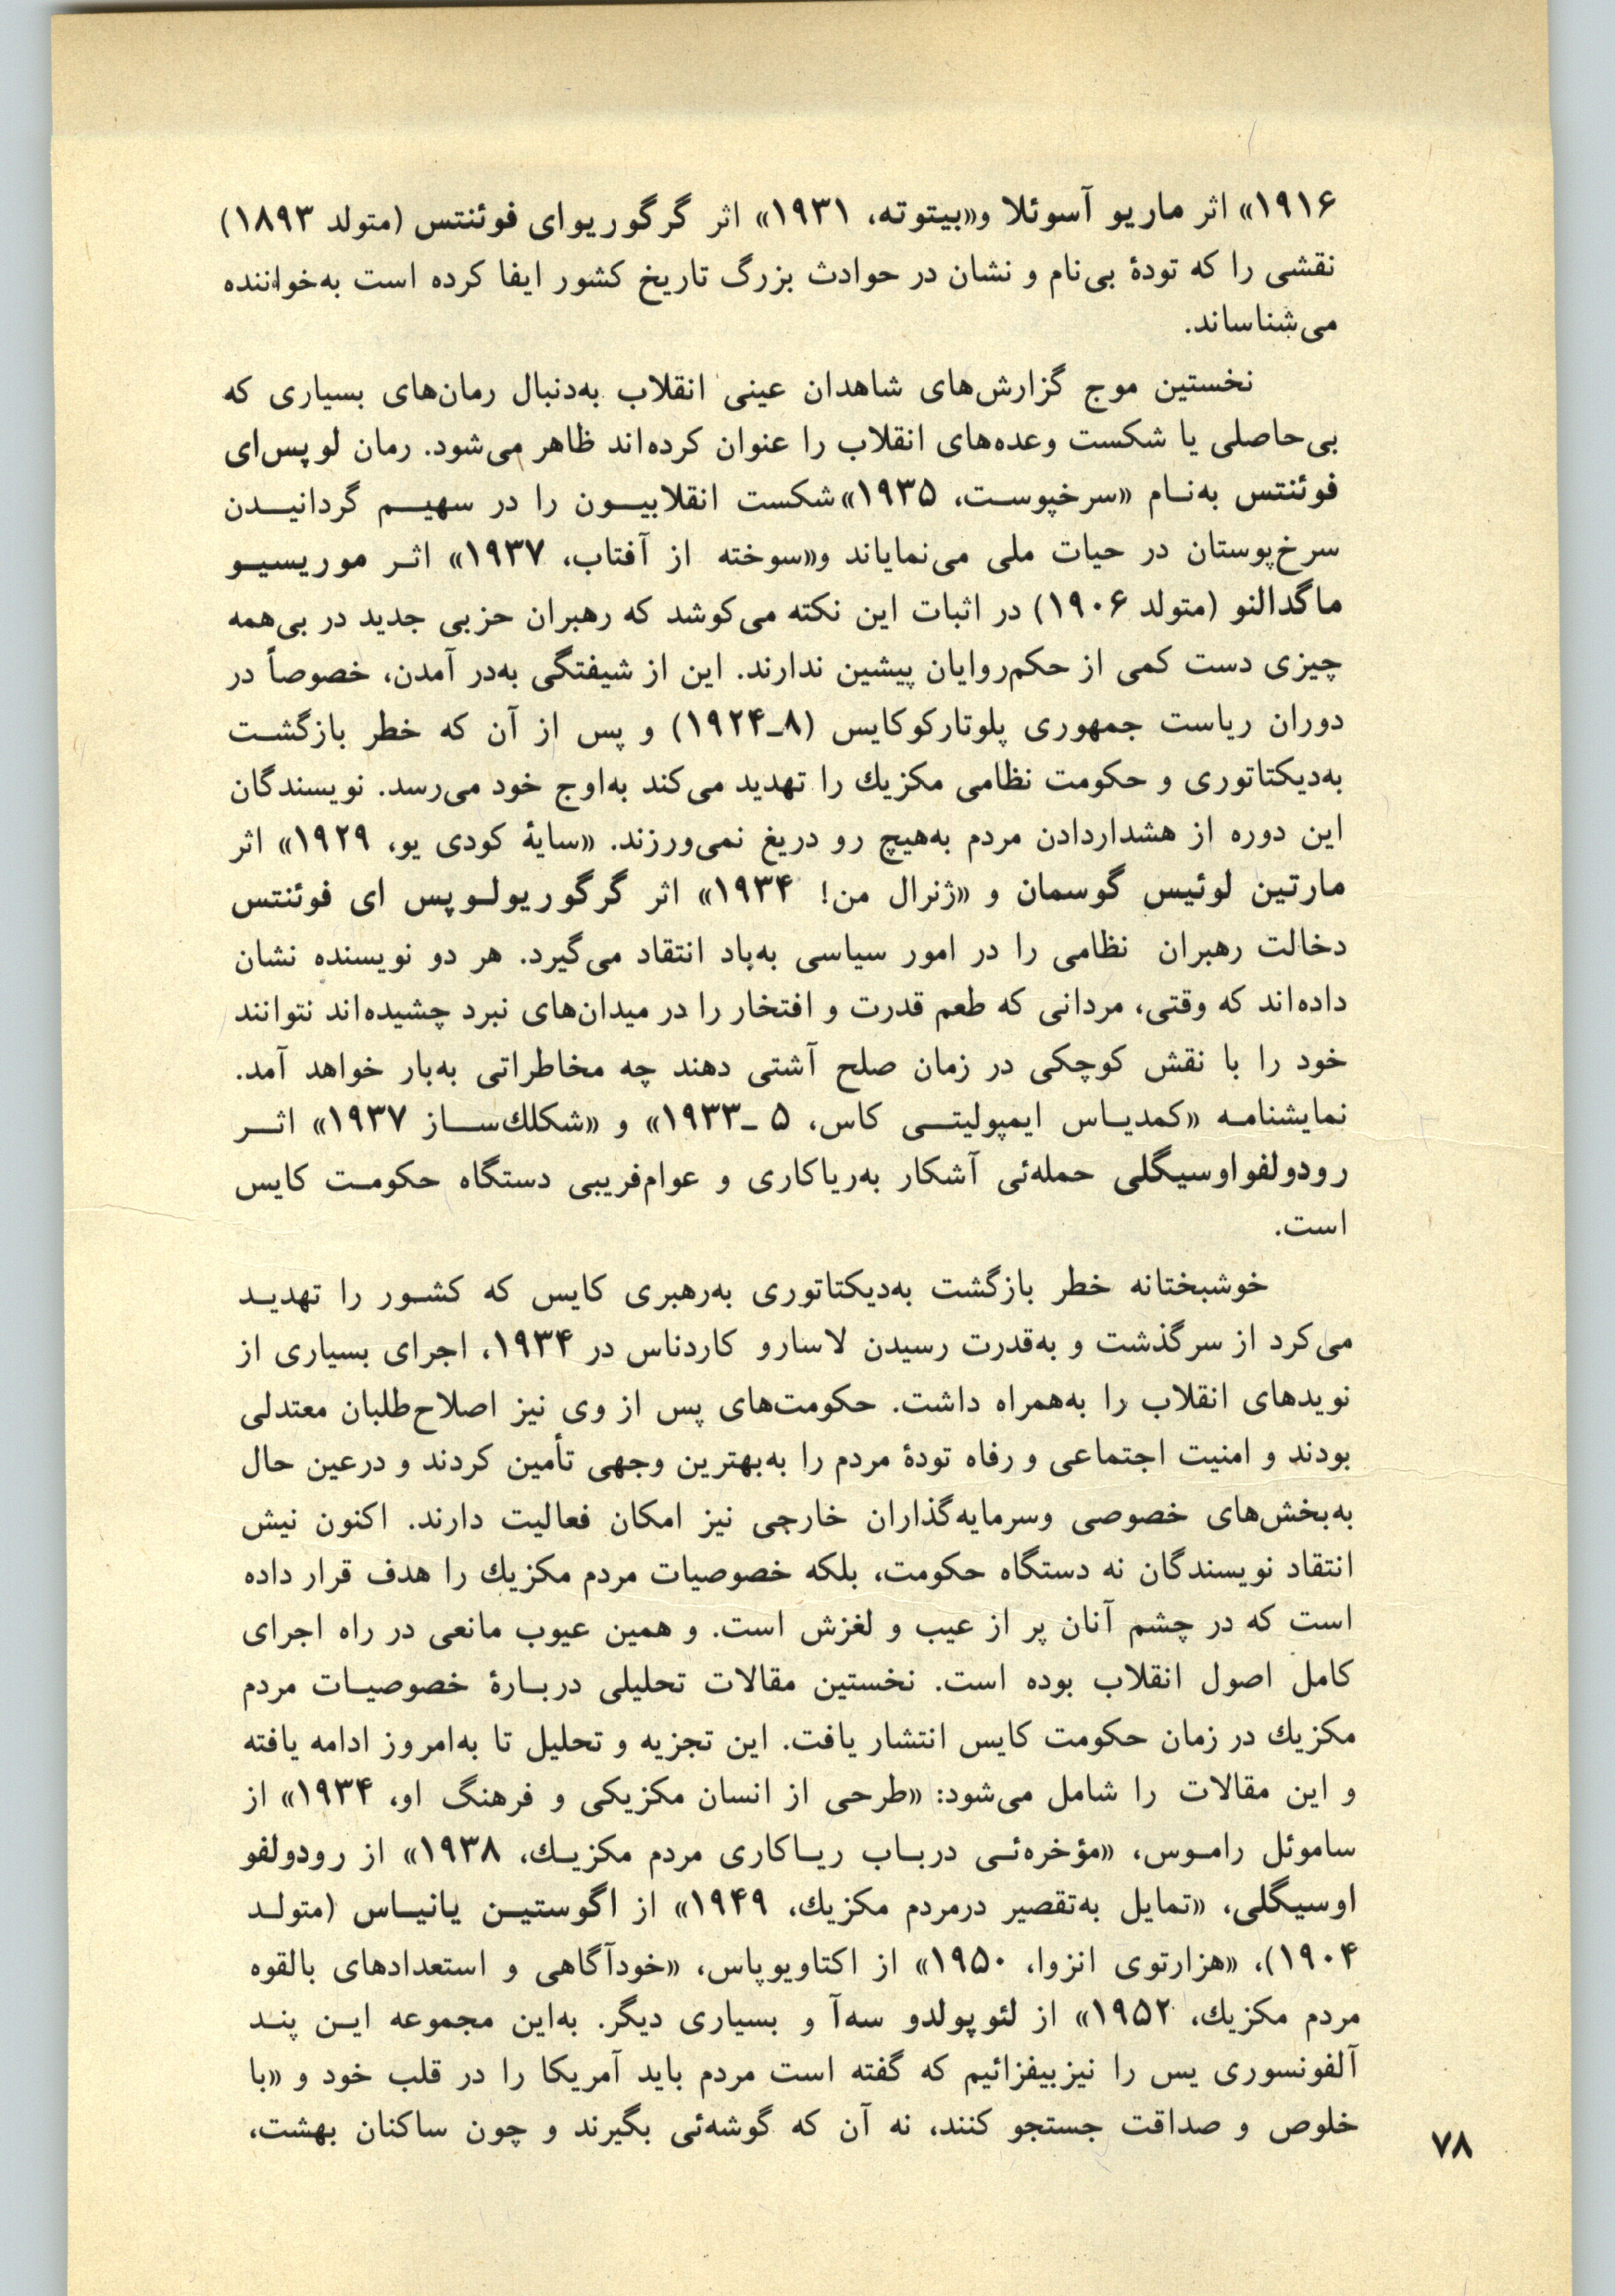 ۱۹۱۶» اثر ماریو آسوئلا و«بیتوته، ۱۹۳۱» اثر گرگوریوای فوئنتس (متولد ۱۸۹۳)
نقشی را که تودهٔ بی‌نام و نشان در حوادث بزرگ تاریخ کشور ایفا کرده است به‌خواننده
می‌شناساند.
نخستین موج گزارش‌های شاهدان عینی انقلاب به‌دنبال رمان‌های بسیاری که
بی‌حاصلی یا شکست وعده‌های انقلاب را عنوان کرده‌اند ظاهر می‌شود. رمان لوپس‌ای
فوئنتس به‌نام «سرخپوست، ۱۹۳۵» شکست انقلابیون را در سهیم گردانیدن
سرخ‌پوستان در حیات ملی می‌نمایاند و«سوخته از آفتاب، ۱۹۳۷» اثر موریسیو
ماگدالنو (متولد ۱۹۰۶) در اثبات این نکته می‌کوشد که رهبران حزبی جدید در بی‌همه
چیزی دست کمی از حکم‌روایان پیشین ندارند. این از شیفتگی به‌در آمدن، خصوصاً در
دوران ریاست جمهوری پلوتارکوکایس (۸ـ۱۹۲۴) و پس از آن که خطر بازگشت
به‌دیکتاتوری و حکومت نظامی مکزیك را تهدید می‌کند به‌اوج خود می‌رسد. نویسندگان
این دوره از هشداردادن مردم به‌هیچ رو دریغ نمی‌ورزند. «سایهٔ کودی یو، ۱۹۲۹» اثر
مارتین لوئیس گوسمان و «ژنرال من! ۱۹۳۴» اثر گرگوریولوپس ای فوئنتس
دخالت رهبران نظامی را در امور سیاسی به‌باد انتقاد می‌گیرد. هر دو نویسنده نشان
داده‌اند که وقتی، مردانی که طعم قدرت و افتخار را در میدان‌های نبرد چشیده‌اند نتوانند
خود را با نقش کوچکی در زمان صلح آشتی دهند چه مخاطراتی به‌بار خواهد آمد.
نمایشنامه «کمدیاس ایمپولیتی کاس، ۵ ـ۱۹۳۳» و «شکلك‌ساز ۱۹۳۷» اثر
رودولفواوسیگلی حمله‌ئی آشکار به‌ریاکاری و عوام‌فریبی دستگاه حکومت کایس
است.
خوشبختانه خطر بازگشت به‌دیکتاتوری به‌رهبری کایس که کشور را تهدید
می‌کرد از سرگذشت و به‌قدرت رسیدن لاسارو کاردناس در ۱۹۳۴، اجرای بسیاری از
نویدهای انقلاب را به‌همراه داشت. حکومت‌های پس از وی نیز اصلاح‌طلبان معتدلی
بودند و امنیت اجتماعی و رفاه تودهٔ مردم را به‌بهترین وجهی تأمین کردند و درعین حال
به‌بخش‌های خصوصی وسرمایه‌گذاران خارجی نیز امکان فعالیت دارند. اکنون نیش
انتقاد نویسندگان نه دستگاه حکومت، بلکه خصوصیات مردم مکزیك را هدف قرار داده
است که در چشم آنان پر از عیب و لغزش است. و همین عیوب مانعی در راه اجرای
کامل اصول انقلاب بوده است. نخستین مقالات تحلیلی دربارهٔ خصوصیات مردم
مکزیك در زمان حکومت کایس انتشار یافت. این تجزیه و تحلیل تا به‌امروز ادامه یافته
و این مقالات را شامل می‌شود: «طرحی از انسان مکزیکی و فرهنگ او، ۱۹۳۴» از
ساموئل راموس، «مؤخره‌ئی درباب ریاکاری مردم مکزیك، ۱۹۳۸» از رودولفو
اوسیگلی، «تمایل به‌تقصیر درمردم مکزیك، ۱۹۴۹» از اگوستین یانیاس (متولد
۱۹۰۴)، «هزارتوی انزوا، ۱۹۵۰» از اکتاویوپاس، «خودآگاهی و استعدادهای بالقوه
مردم مکزیك، ۱۹۵۲» از لئوپولدو سه‌آ و بسیاری دیگر. به‌این مجموعه این پند
آلفونسوری یس را نیزبیفزائیم که گفته است مردم باید آمریکا را در قلب خود و «با
خلوص و صداقت جستجو کنند، نه آن که گوشه‌ئی بگیرند و چون ساکنان بهشت،
۷۸